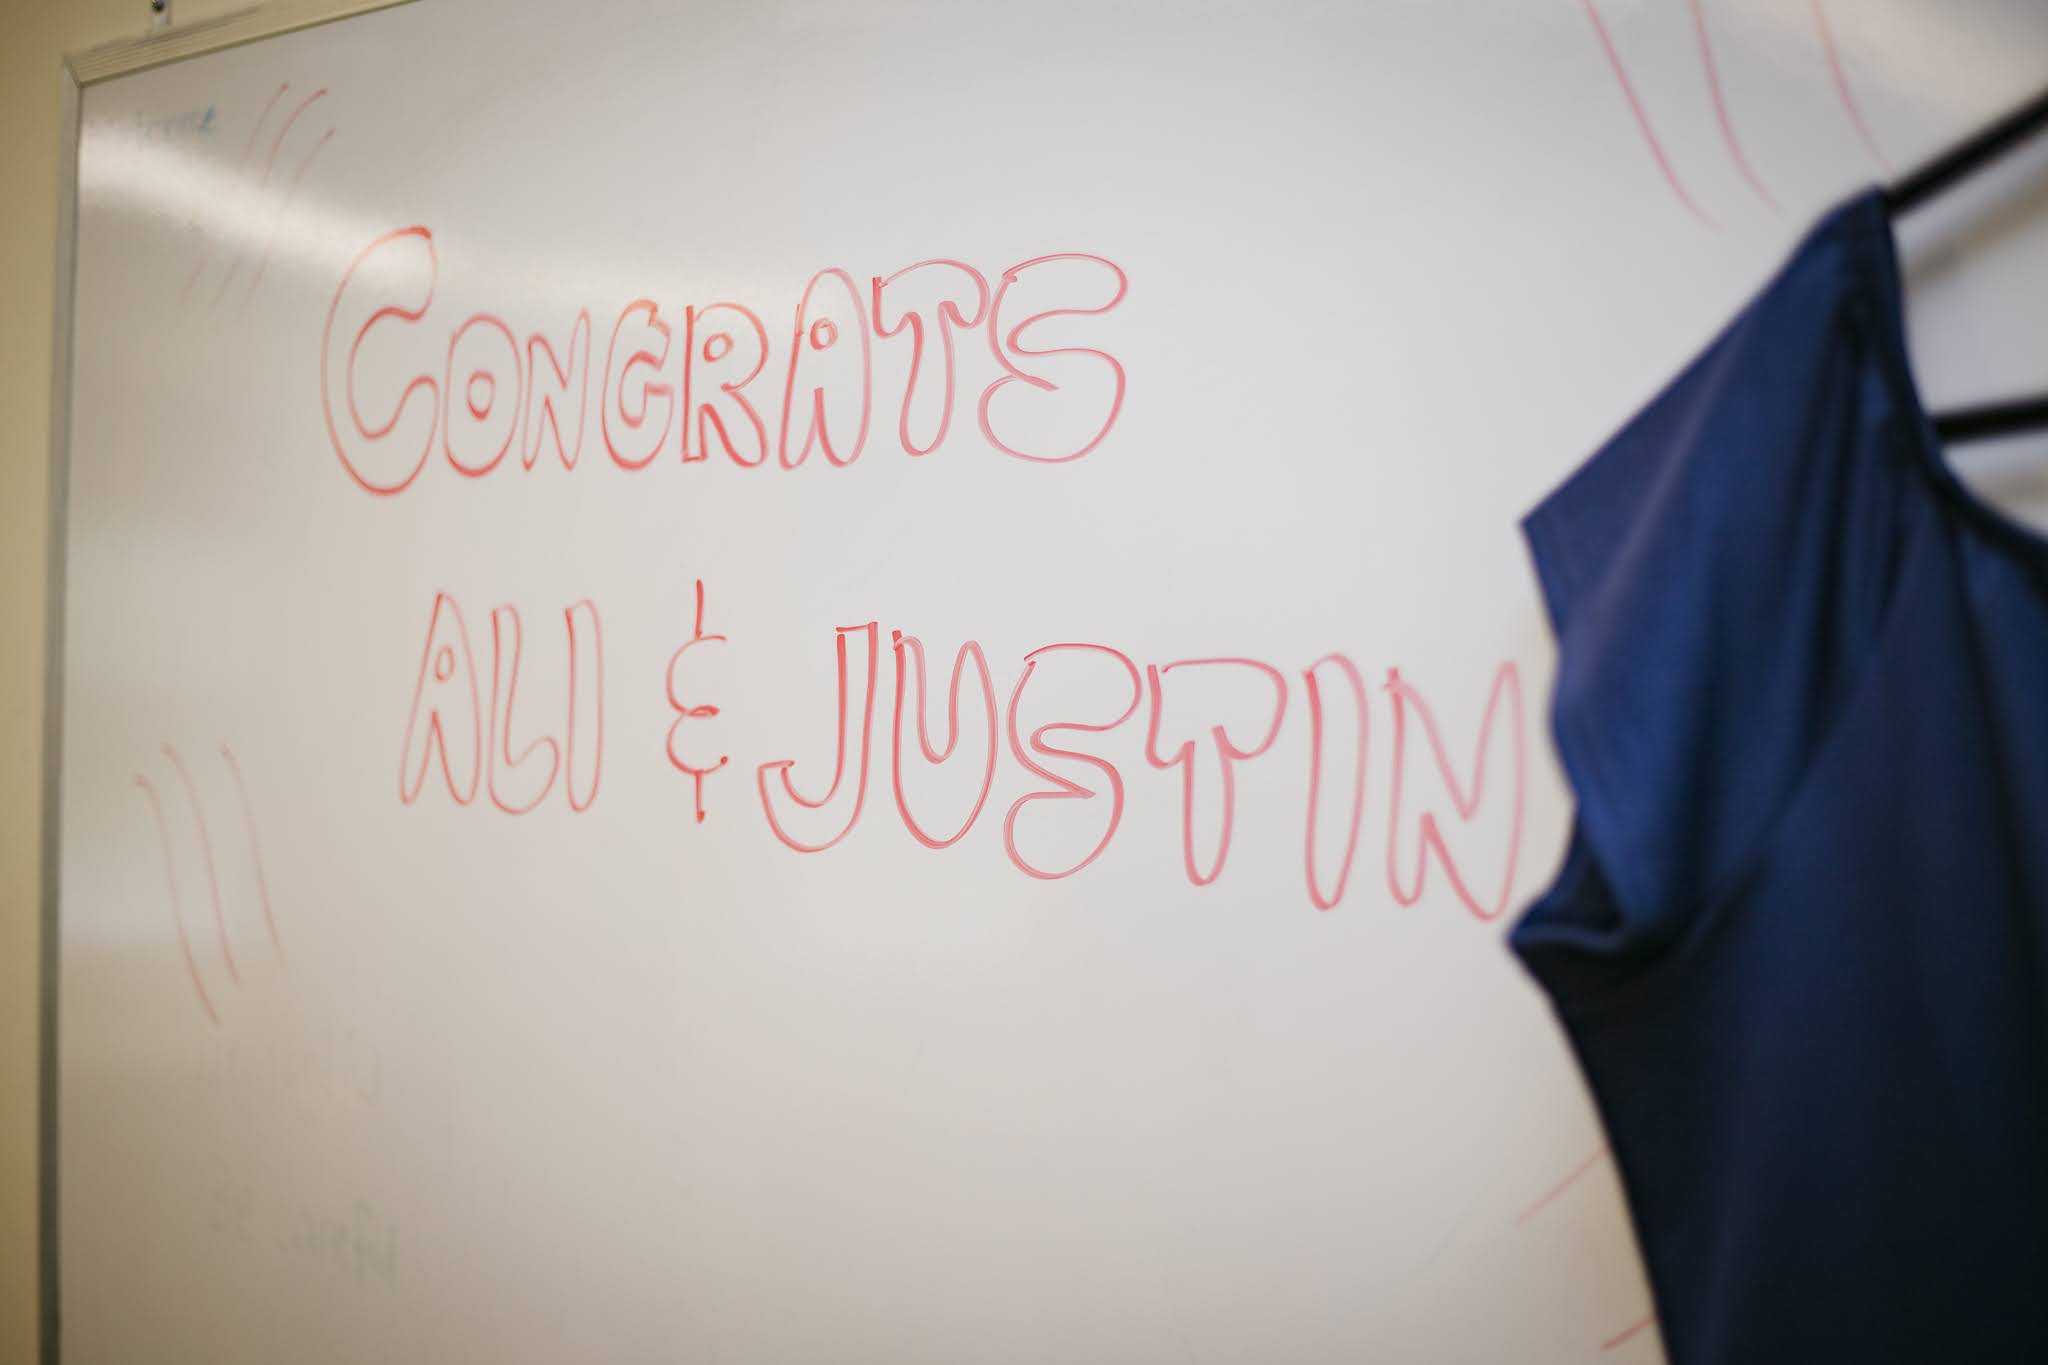 CONGRATS
ALI & JUSTIN